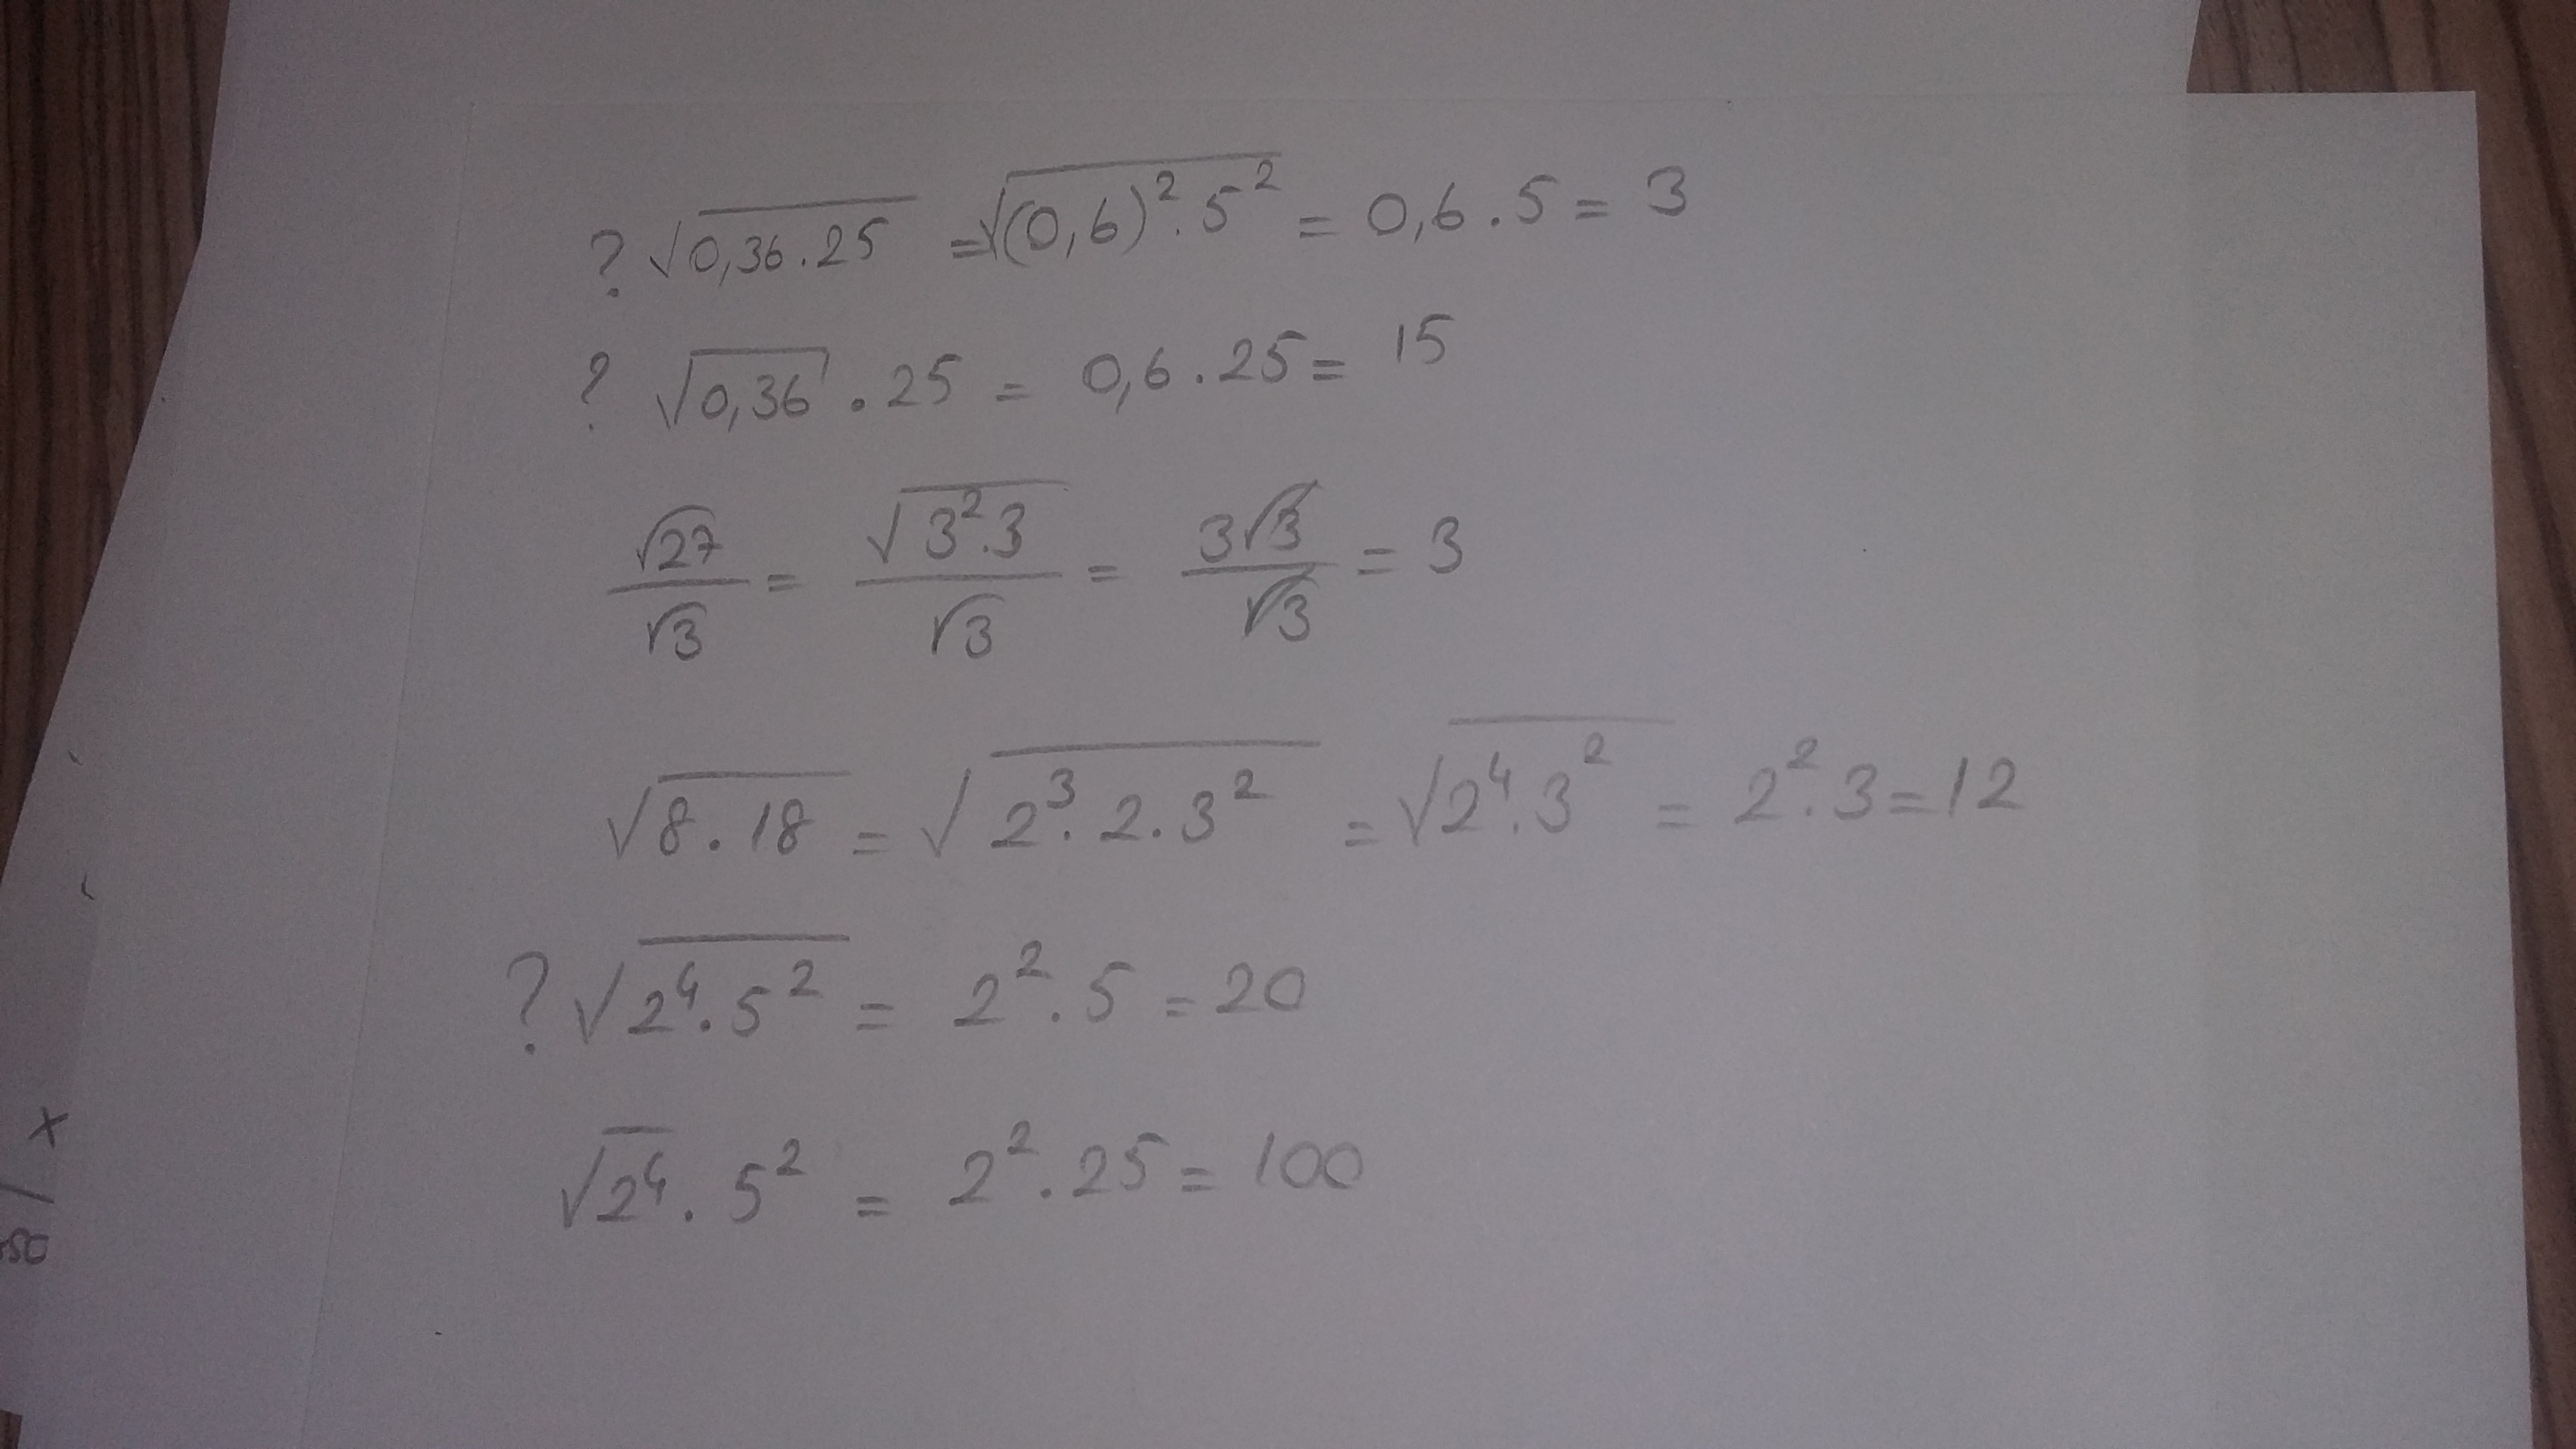 ? √0,36.25 = √(0,6)².5² = 0,6.5 = 3
? √0,36 . 25 = 0,6.25 = 15
√27/√3 = √3².3/√3 = 3√3/√3 = 3
√8.18 = √2³.2.3² = √2⁴.3² = 2².3 = 12
? √2⁴.5² = 2².5 = 20
√2⁴ . 5² = 2².25 = 100
x
50